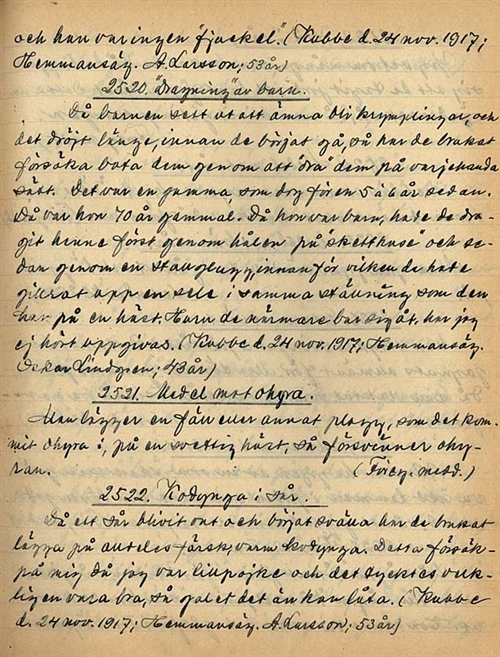 och han var ingen "fjackel." (Kubbe d. 24 nov. 1917;
Hemmansäg. A. Larsson; 53 år)
2520. "Dragning" av barn.
Då barnen sett ut att ämna bli krymplingar, och
det dröjt länge, innan de börjat gå, så har de brukat
försöka bota dem genom att "dra" dem på varjehanda
sätt. Det var en gumma, som dog för en 5 à 6 år sedan.
Då var hon 70 år gammal. Då hon var barn, hade de dra-
git henne först genom hålen på "sketthuse" och se-
dan genom en stallglugg, innanför vilken de hade
gillrat upp en sele i samma ställning, som den
har på en häst. Huru de närmare bar sig åt, har jag
ej hört uppgivas. (Kubbe d. 24 nov. 1917; Hemmansäg.
Oskar Lindgren; 43 år)
2521. Medel mot ohyra.
Man lägger en fäll eller annat plagg, som det kom-
mit ohyra i, på en svettig häst, så försvinner ohy-
ran. (Föreg. medd.)
2522. Kodynga i sår.
Då ett sår blivit ont och börjat svälla har de brukat
lägga på alldeles färsk, varm kodynga. Detta försök-
på mig då jag var lillpojke och det tycktes verk-
ligen vara bra, så galet det än kan låta. (Kubbe
d. 24 nov. 1917; Hemmansäg. A. Larsson; 53 år)